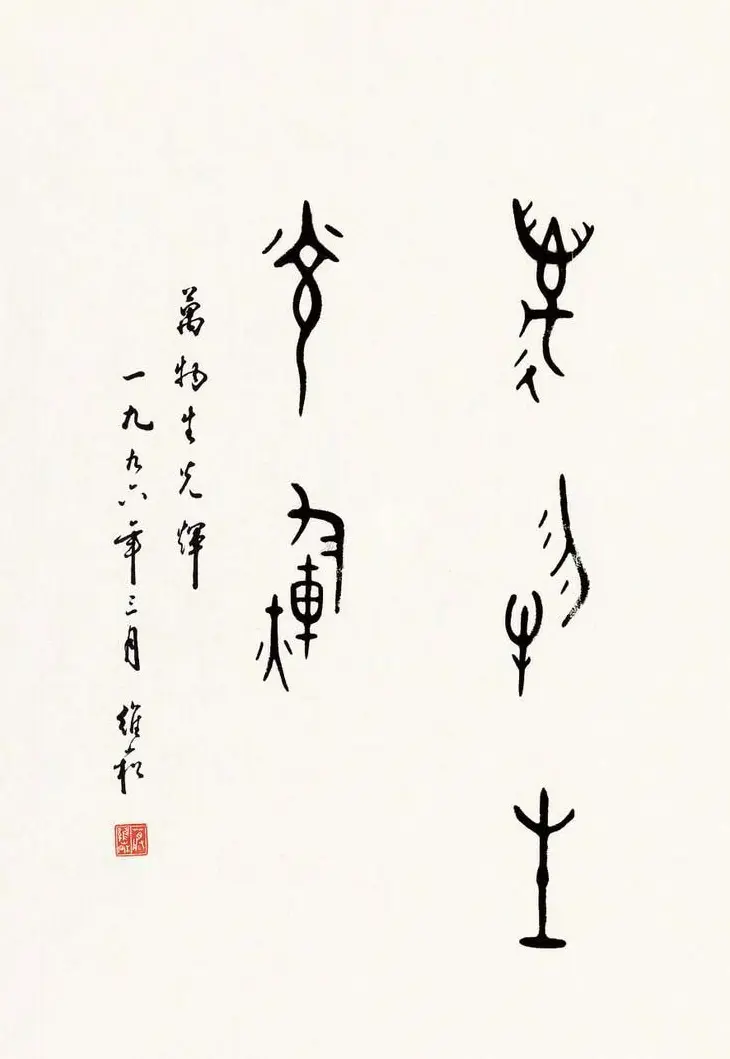 萬物生
光輝
萬物生光輝
一九九六年三月 維崧